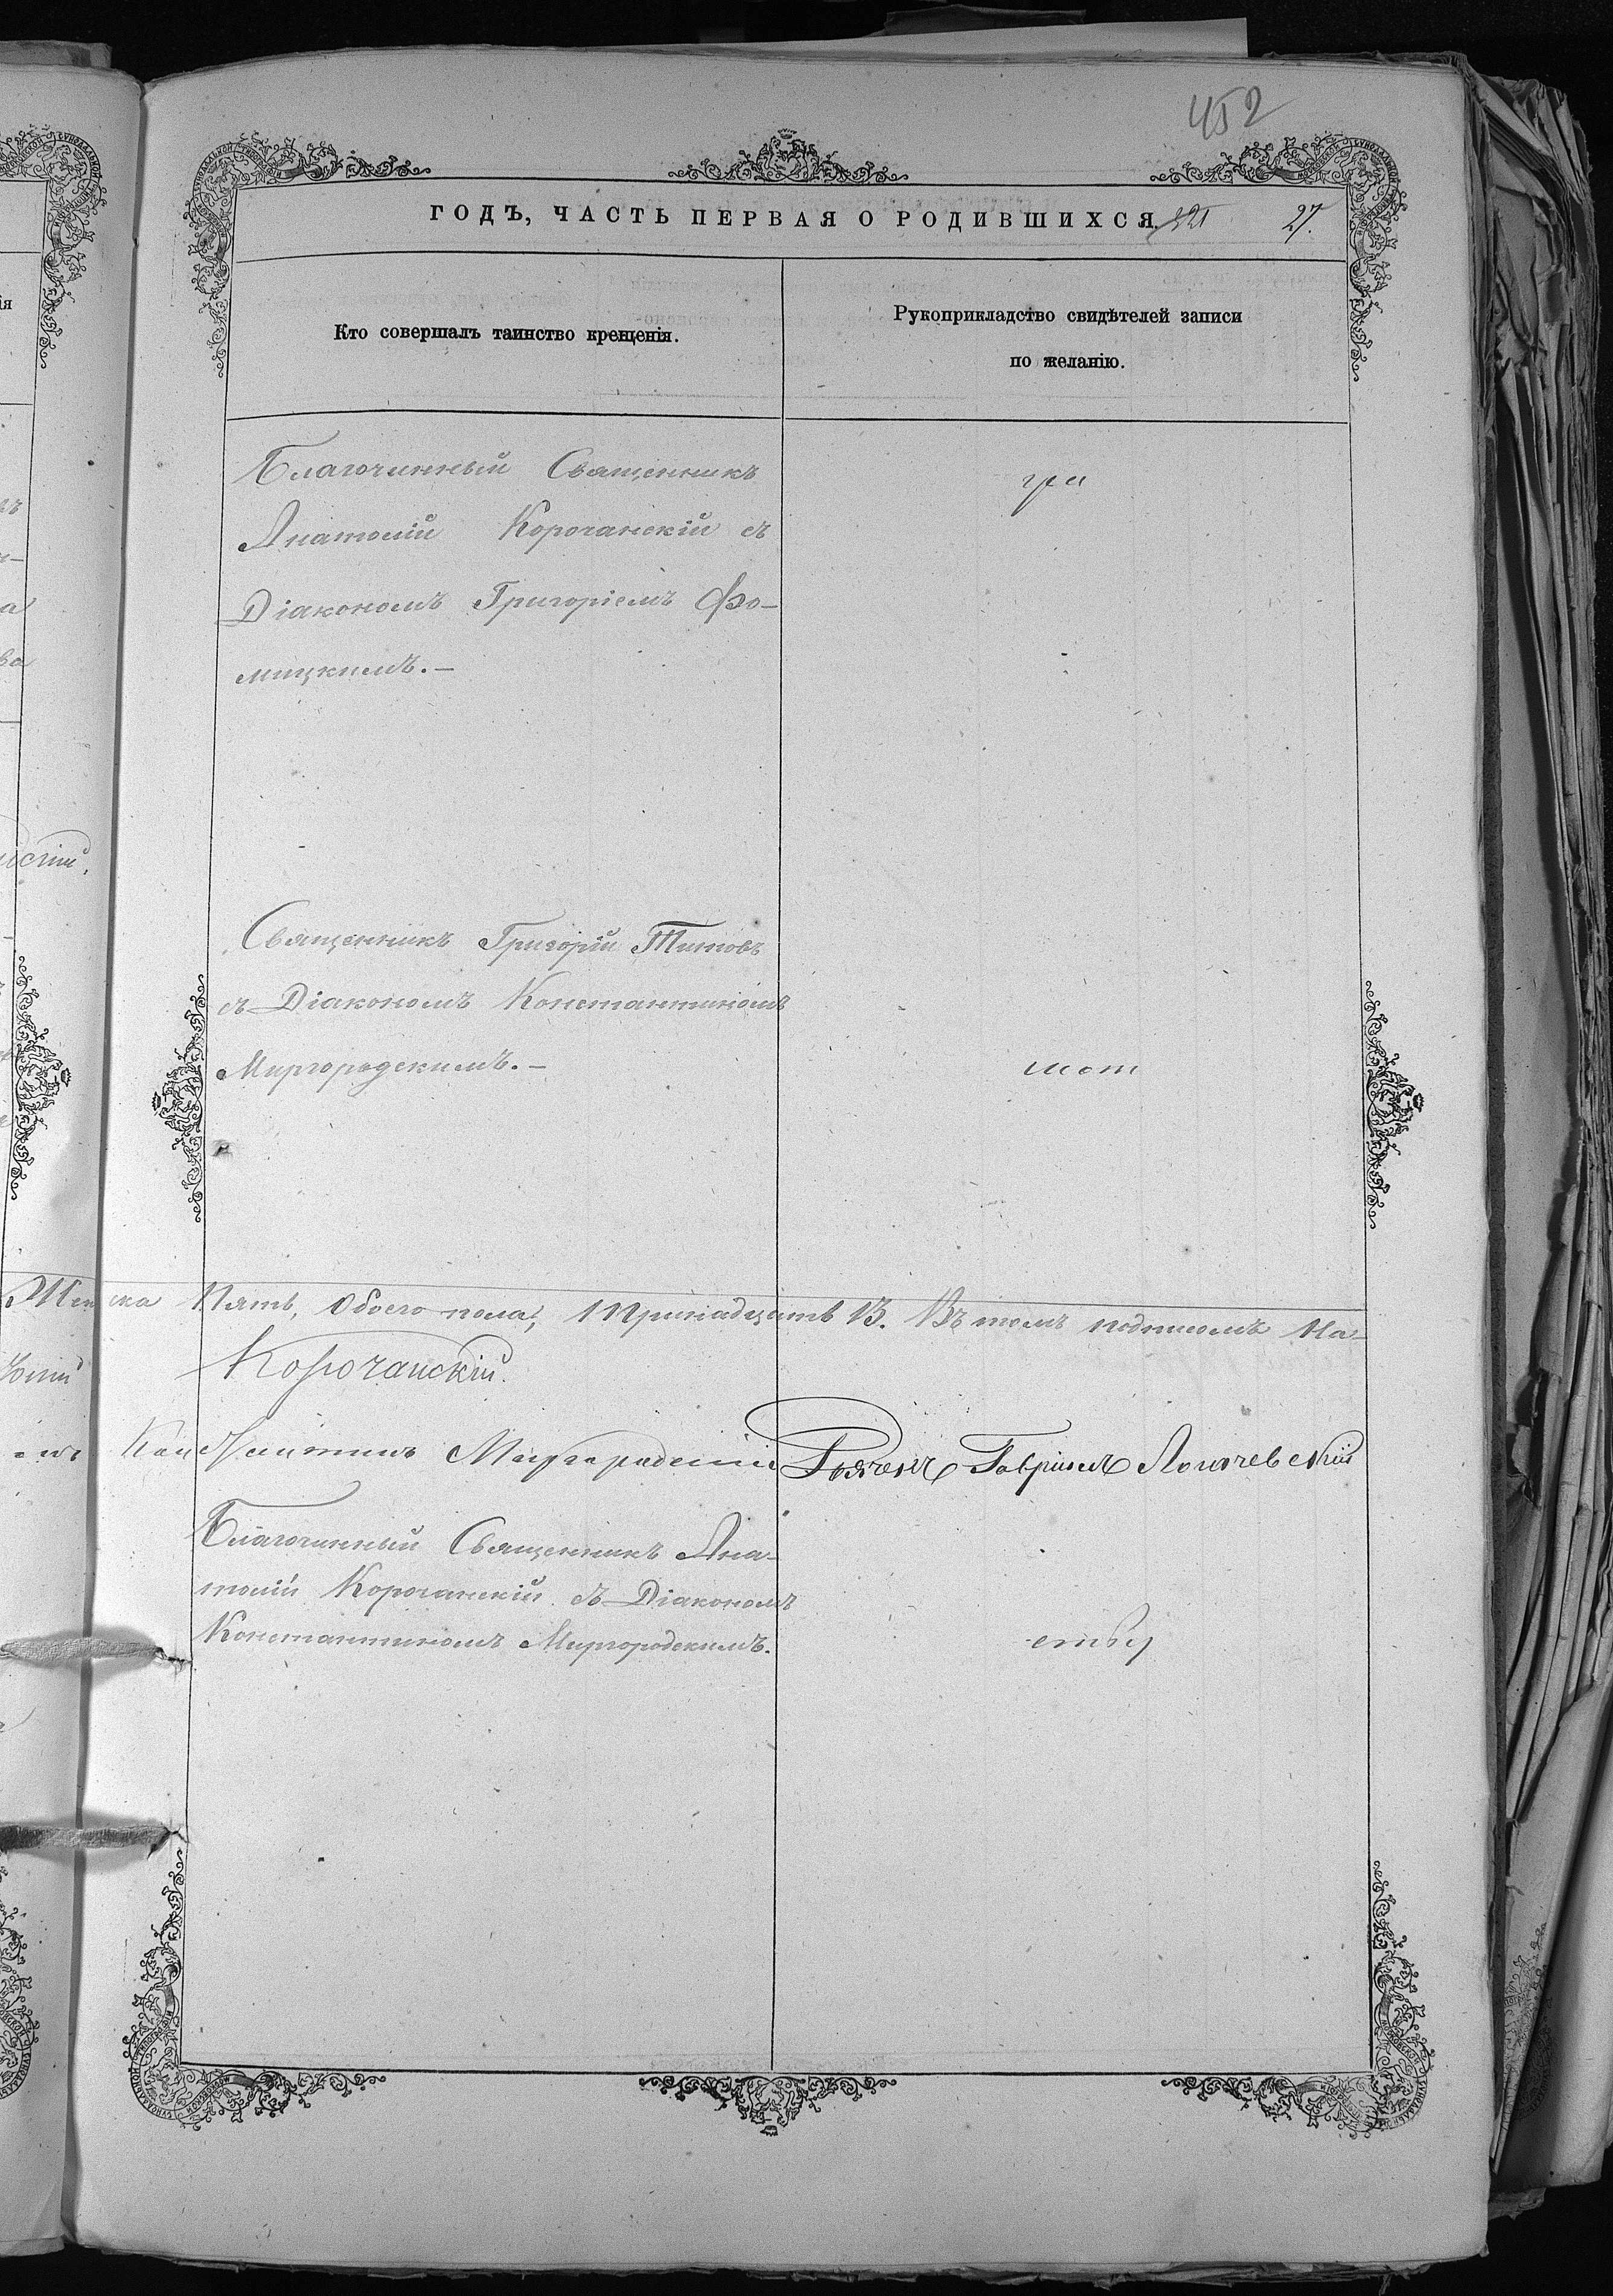 452
ГОДЪ, ЧАСТЬ ПЕРВАЯ О РОДИВШИХСЯ. 27.
Кто совершалъ таинство крещенія.
Рукоприкладство свидѣтелей записи
по желанію.
Благочинный Священникъ
Анатолій Корочанскій съ
Діакономъ Григоріемъ Фо-
мицкимъ.—
гра
Священникъ Григорій Титовъ
съ Діакономъ Константиномъ
Миргородскимъ.—
мот
Пять, Обоего пола, Тринадцать 13. Въ томъ подписомъ На-
Корочанскій.
Константинъ Миргородскій Дьячекъ Гавріилъ
Благочинный Священникъ Ана-
толій Корочанскій съ Діакономъ
Константиномъ Миргородскимъ.
ству